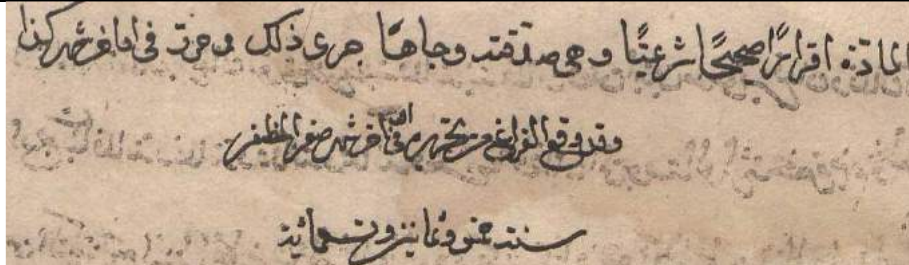 اقرارًا صحيحًا شرعيًا وهي صدقته وجاهًا جرى ذلك وحرر في اواخر شهر كذا
وقد وقع الفراغ من تحريره في اواخر شهر صفر المظفر
سنة وثمانين وتسعمائة